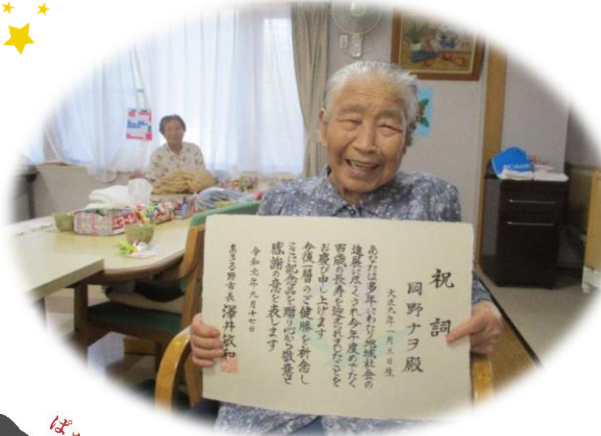 祝詞
岡野ナヲ殿
大正九年一月三日生
あなたは多年にわたり地域社会の
進展に尽くされ今年度めでたく
百歳の長寿を迎えられましたことを
お慶び申し上げます
今後一層のご健勝を祈念し
ここに記念品を贈り心から敬意と
感謝の意を表します
令和元年九月十七日
あきる野市長 澤井敏和
ぱ